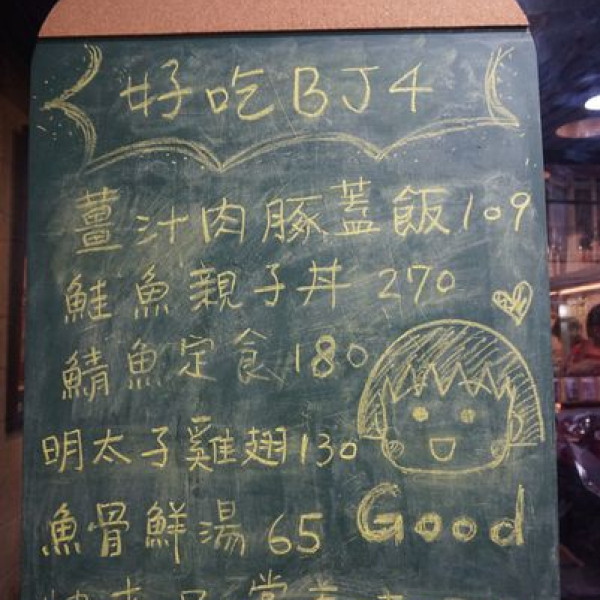 好吃BJ4
薑汁肉豚蓋飯109
鮭魚親子丼 270
鯖魚定食180
明太子雞翅130
魚骨鮮湯 65
Good